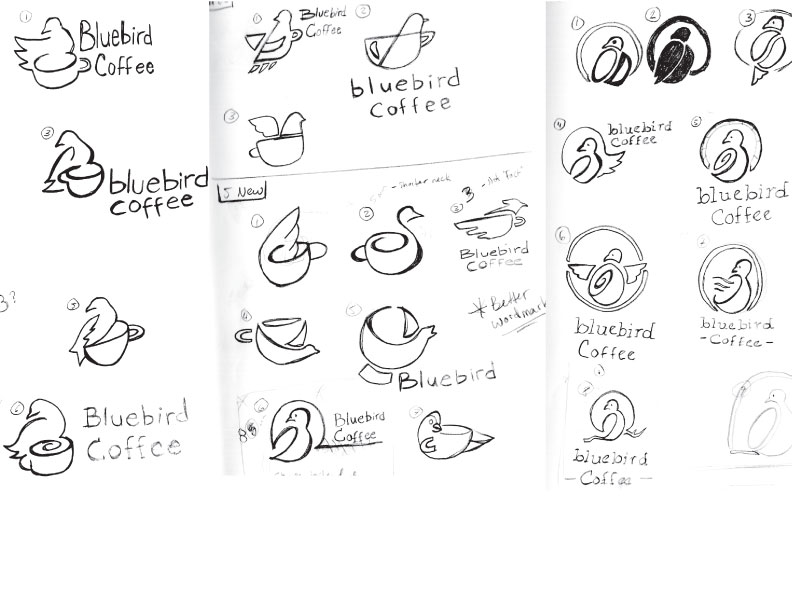 1
Bluebird
Coffee
3
bluebird
coffee
3?
3
Bluebird
Coffee
1
Bluebird
Coffee
2
bluebird
Coffee
3
5 New
1
2
3
Bluebird
Coffee
* Better
wordmark
4
5
Bluebird
6
Bluebird
Coffee
1
2
3
4
bluebird
Coffee
5
bluebird
Coffee
6
bluebird
Coffee
bluebird
- Coffee -
bluebird
- Coffee -